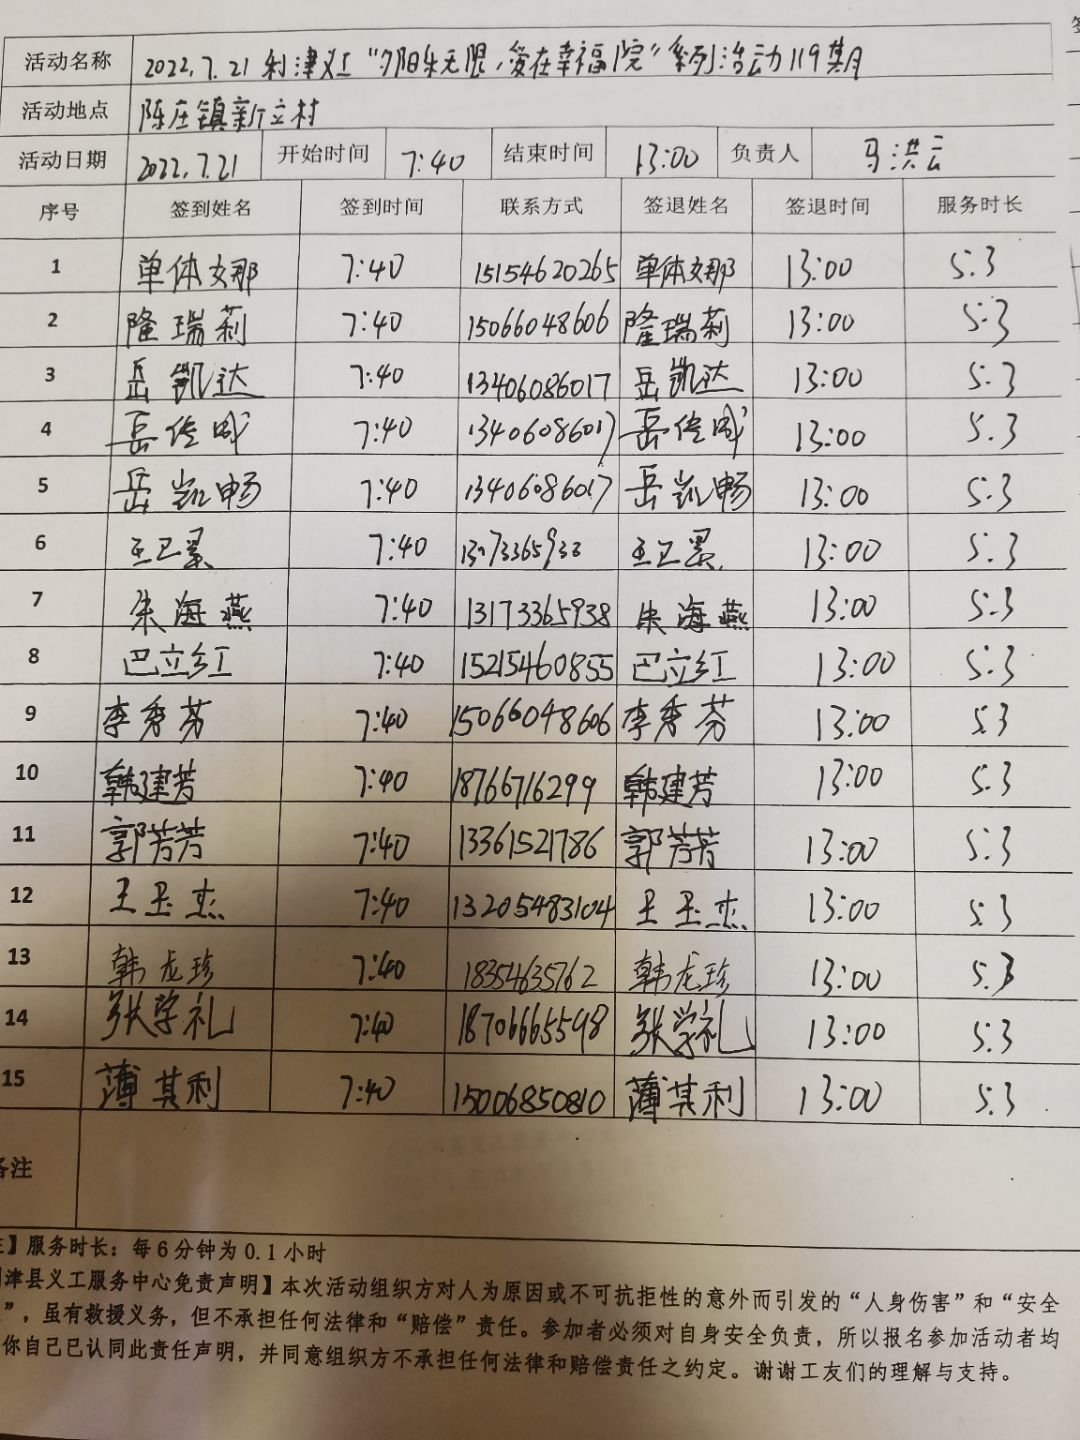 活动名称 2022.7.21 利津义工“夕阳乐无限,爱在幸福院”系列活动119期
活动地点 陈庄镇新立村
活动日期 2022.7.21 开始时间 7:40 结束时间 13:00 负责人 马洪云
序号 签到姓名 签到时间 联系方式 签退姓名 签退时间 服务时长
1 单体文那 7:40 15154620265 单体文那 13:00 5.3
2 隆瑞莉 7:40 15066048606 隆瑞莉 13:00 5.3
3 岳凯达 7:40 13406086017 岳凯达 13:00 5.3
4 岳 7:40 13406086017 岳 13:00 5.3
5 岳凯畅 7:40 13406086017 岳凯畅 13:00 5.3
6 王卫景 7:40 王卫景 13:00 5.3
7 朱海燕 7:40 13173365938 朱海燕 13:00 5.3
8 巴立红 7:40 15215460855 巴立红 13:00 5.3
9 李秀芬 7:40 15066048606 李秀芬 13:00 5.3
10 韩建芳 7:40 18766716299 韩建芳 13:00 5.3
11 郭芳芳 7:40 13361521786 郭芳芳 13:00 5.3
12 王玉杰 7:40 13205483104 王玉杰 13:00 5.3
13 韩龙珍 7:40 18354635762 韩龙珍 13:00 5.3
14 张学礼 7:40 18706665598 张学礼 13:00 5.3
15 薄其利 7:40 15006850810 薄其利 13:00 5.3
备注
】服务时长：每6分钟为0.1小时
津县义工服务中心免责声明】本次活动组织方对人为原因或不可抗拒性的意外而引发的“人身伤害”和“安全
”，虽有救援义务，但不承担任何法律和“赔偿”责任。参加者必须对自身安全负责，所以报名参加活动者均
你自己已认同此责任声明，并同意组织方不承担任何法律和赔偿责任之约定。谢谢工友们的理解与支持。